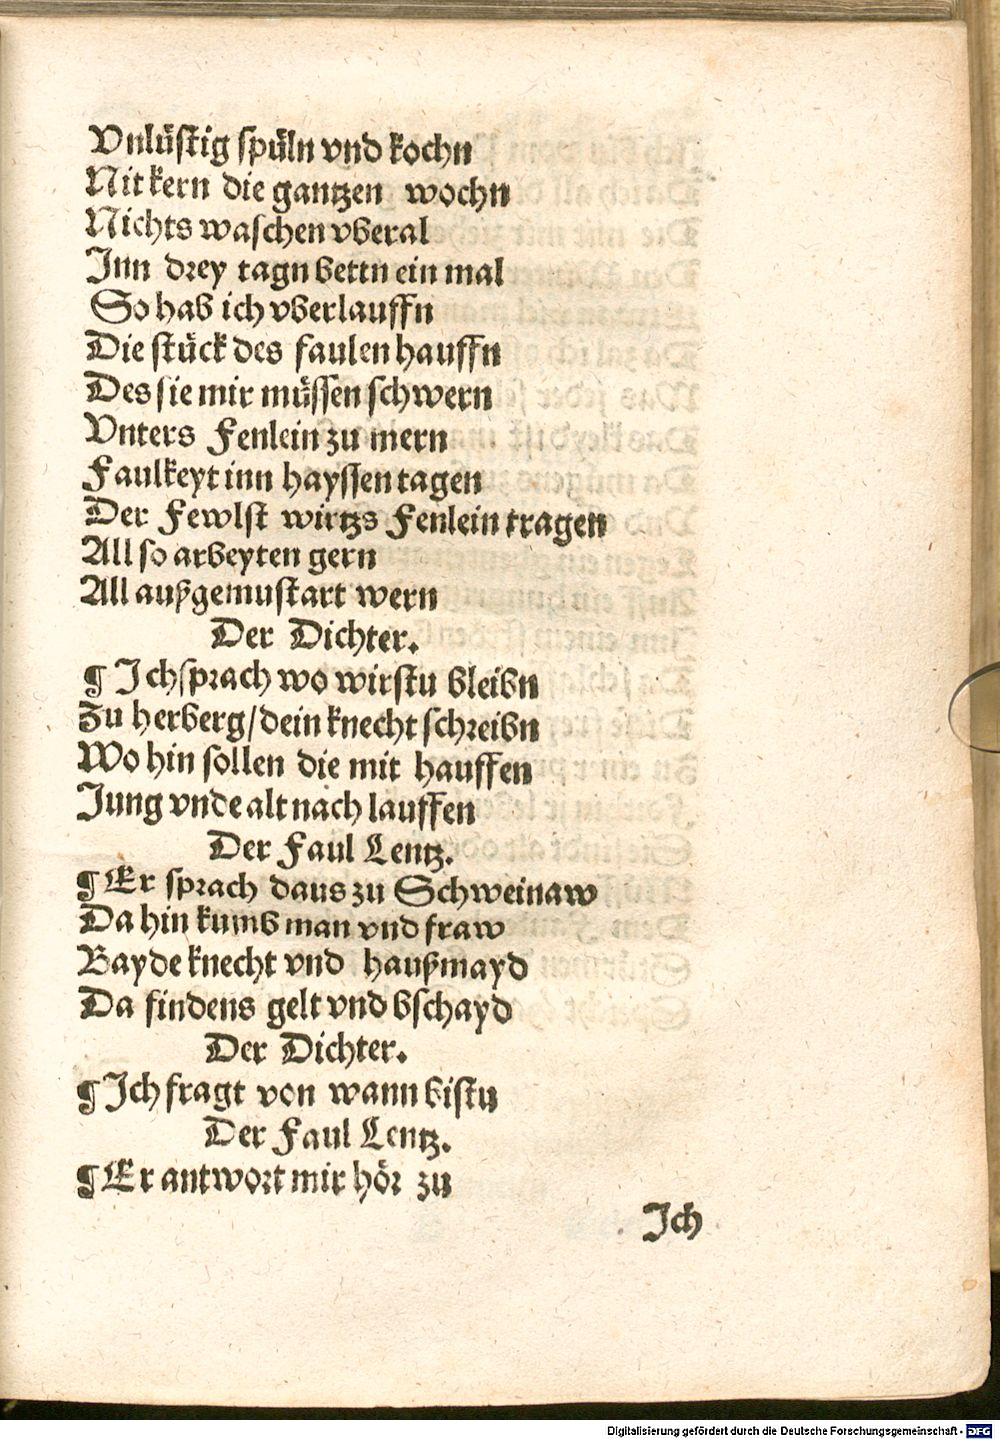 Vnlüstig spüln vnd kochn
Nit kern die gantzen wochn
Nichts waschen vberal
Inn drey tagn bettn ein mal
So hab ich vberlauffn
Die stück des faulen hauffn
Des sie mir müssen schwern
Vnters Fenlein zu mern
Faulkeyt inn hayssen tagen
Der Fewlst wirtzs Fenlein tragen
All so arbeyten gern
All außgemustart wern
Der Dichter.
¶ Ich sprach wo wirstu bleibn
Zu herberg/dein knecht schreibn
Wo hin sollen die mit hauffen
Jung vnde alt nach lauffen
Der Faul Lentz.
¶ Er sprach daus zu Schweinaw
Da hin kumb man vnd fraw
Bayde knecht vnd haußmayd
Da findens gelt vnd bschayd
Der Dichter.
¶ Ich fragt von wann bistu
Der Faul Lentz.
¶ Er antwort mir hör zu
Ich
Digitalisierung gefördert durch die Deutsche Forschungsgemeinschaft - DFG